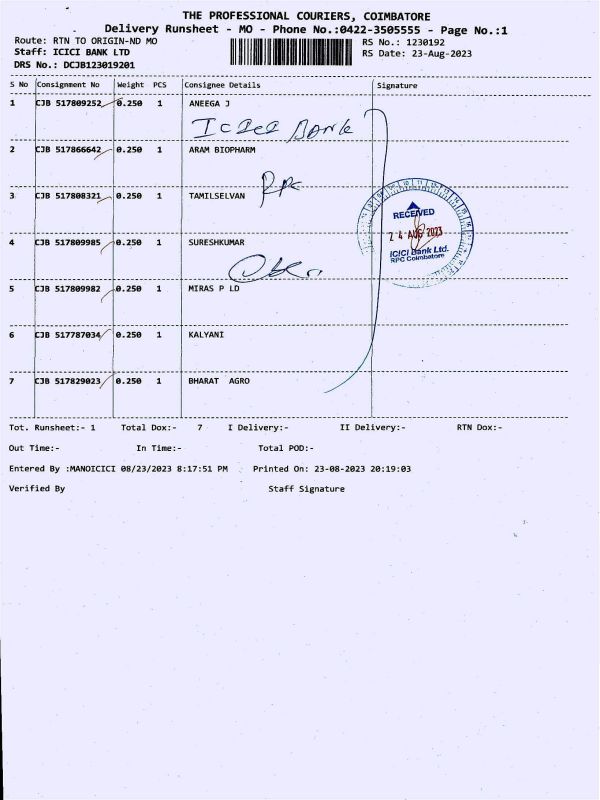 THE PROFESSIONAL COURIERS, COIMBATORE
Delivery Runsheet - MO - Phone No.:0422-3505555 - Page No.:1
Route: RTN TO ORIGIN-ND MO RS No.: 1230192
Staff: ICICI BANK LTD RS Date: 23-Aug-2023
DRS No.: DCJB123019201
S No Consignment No Weight PCS Consignee Details Signature
1 CJB 517809252 0.250 1 ANEEGA J
ICICI Bank
2 CJB 517866642 0.250 1 ARAM BIOPHARM
RPC
3 CJB 517808321 0.250 1 TAMILSELVAN
RECEIVED
24 AUG 2023
ICICI Bank Ltd.
RPC Coimbatore
4 CJB 517809985 0.250 1 SURESHKUMAR
5 CJB 517809982 0.250 1 MIRAS P LD
6 CJB 517787034 0.250 1 KALYANI
7 CJB 517829023 0.250 1 BHARAT AGRO
Tot. Runsheet:- 1 Total Dox:- 7 I Delivery:- II Delivery:- RTN Dox:-
Out Time:- In Time:- Total POD:-
Entered By :MANOICICI 08/23/2023 8:17:51 PM Printed On: 23-08-2023 20:19:03
Verified By Staff Signature